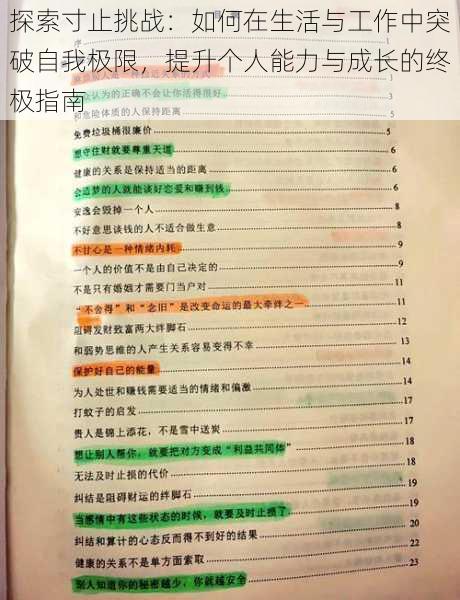 探索寸止挑战：如何在生活与工作中突
破自我极限，提升个人能力与成长的终
极指南
众认为的正确不会让你活得很好
和危险体质的人保持距离
免费垃圾桶很廉价 5
想守住财就要尊重天道 5
健康的关系是保持适当的距离 6
会造梦的人就能谈好恋爱和赚到钱 6
安逸会毁掉一个人 8
不好意思谈钱的人不适合做生意 8
不甘心是一种情绪内耗 9
一个人的价值不是由自己决定的 9
不是只有婚姻才需要门当户对 11
“不舍得”和“念旧”是改变命运的最大牵绊之一 11
阻碍发财致富两大绊脚石 12
和弱势思维的人产生关系容易变得不幸 13
保护好自己的能量 14
为人处世和赚钱需要适当的情绪和偏激 14
打蚊子的启发 17
贵人是锦上添花，不是雪中送炭 17
想让别人帮你，就要把对方变成“利益共同体” 18
无法及时止损的代价 18
纠结是阻碍财运的绊脚石 19
当感情中有这些状态的时候，就要及时止损了 19
纠结和算计的心态反而得不到好的结果 20
健康的关系不是单方面索取 22
别人知道你的秘密越少，你就越安全 23